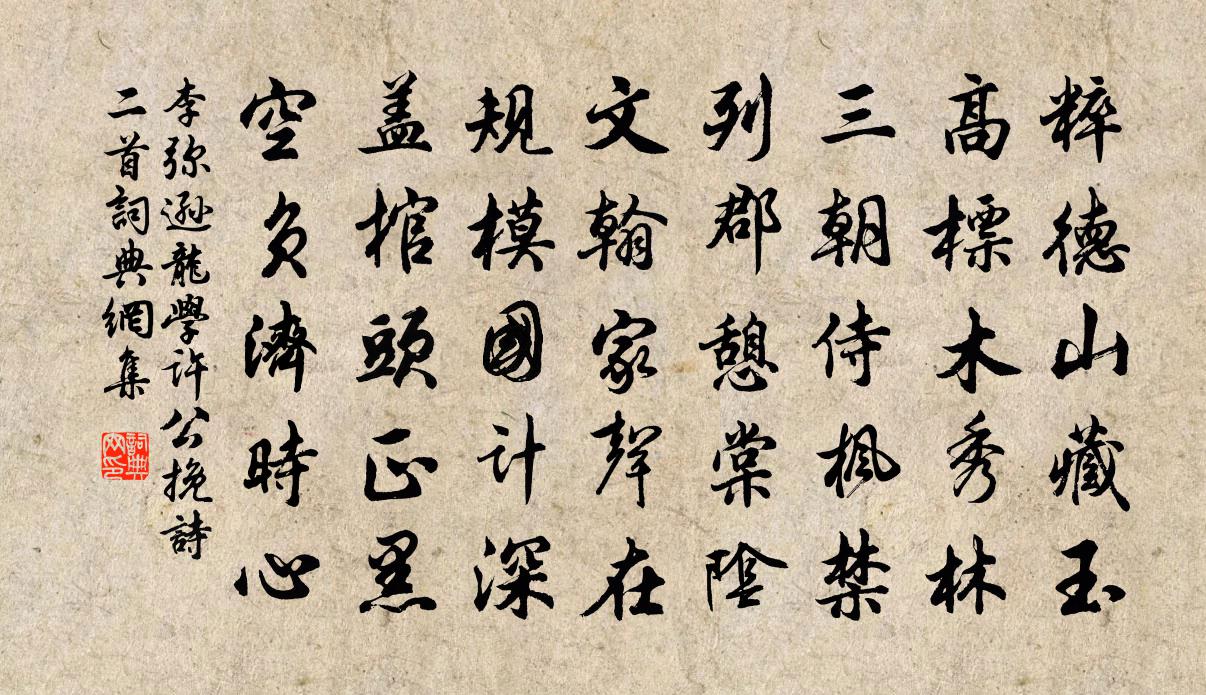 粹德山藏玉
高標木秀林
三朝侍楓禁
列郡憩棠陰
文翰家聲在
規模國計深
盖棺頭正黑
空負濟時心
李弥遜龍學許公挽詩
二首詞典網集
詞典
网印